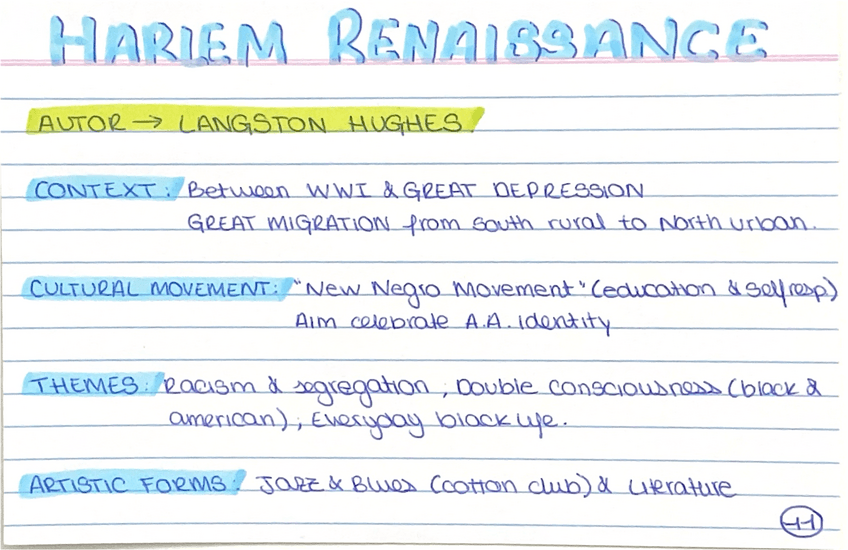 HARLEM RENAISSANCE
AUTOR → LANGSTON HUGHES
CONTEXT: Between WWI & GREAT DEPRESSION
GREAT MIGRATION from south rural to North urban.
CULTURAL MOVEMENT: "New Negro Movement" (education & selfresp)
Aim celebrate A.A. identity
THEMES: Racism & segregation, Double consciousness (black &
american), Everyday black life.
ARTISTIC FORMS: Jazz & Blues (cotton club) & Literature